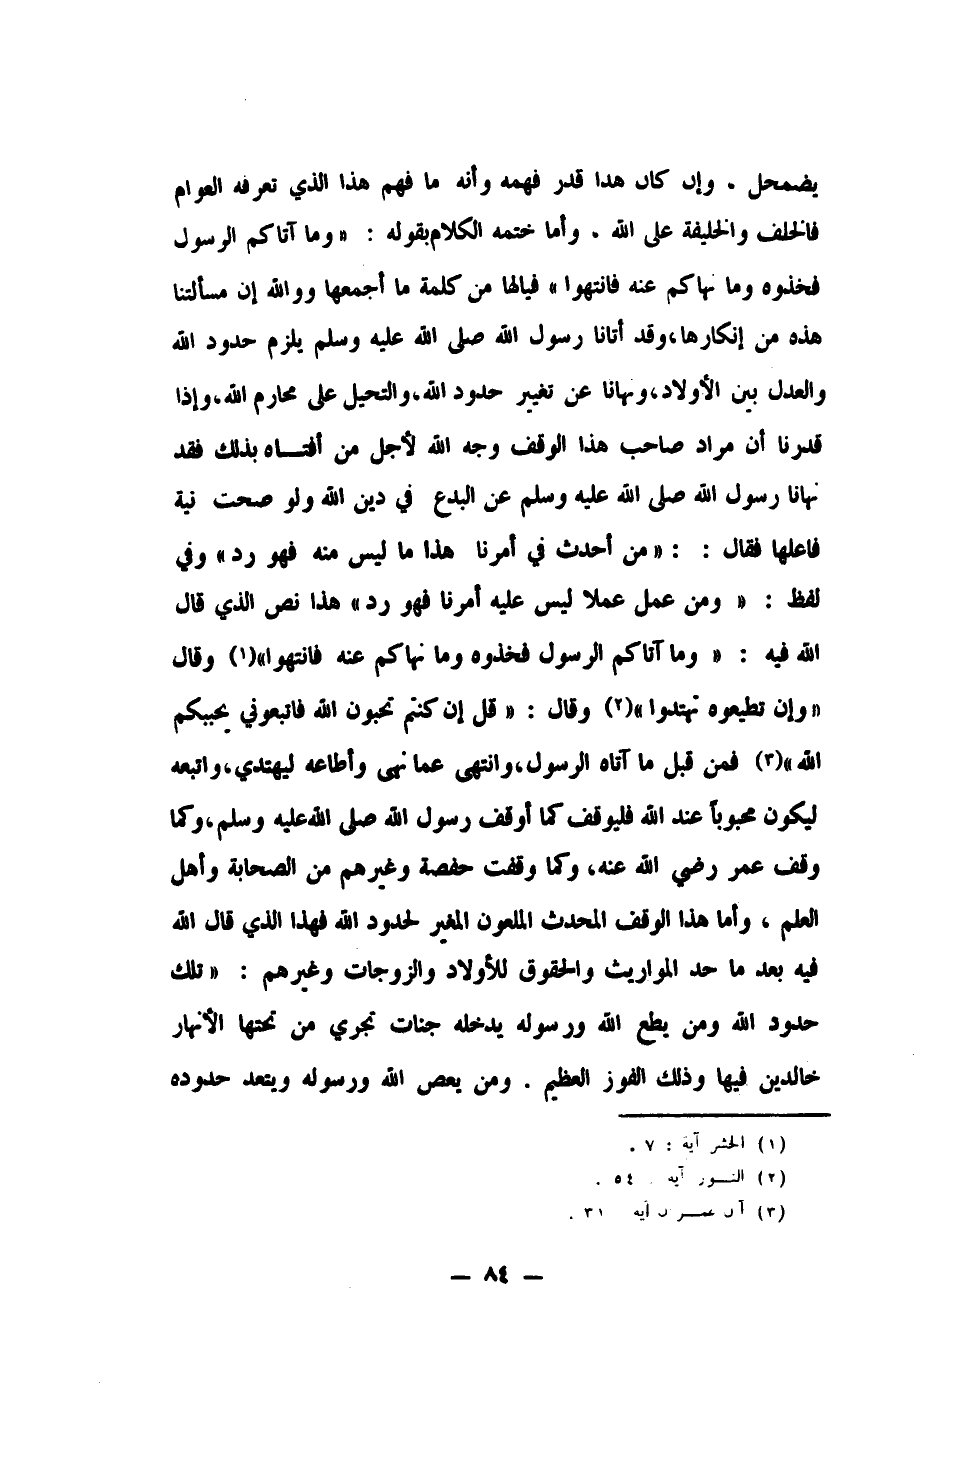 يضمحل . وإن كان هذا قدر فهمه وأنه ما فهم هذا الذي تعرفه العوام
فالخلف والخليفة على الله . وأما ختمه الكلام بقوله : « وما آتاكم الرسول
فخذوه وما نهاكم عنه فانتهوا » فيالها من كلمة ما أجمعها ووالله إن مسألتنا
هذه من إنكارها، وقد أتانا رسول الله صلى الله عليه وسلم يلزم حدود الله
والعدل بين الأولاد، ونهانا عن تغيير حدود الله، والتحيل على محارم الله، وإذا
قدرنا أن مراد صاحب هذا الوقف وجه الله لأجل من أفتاه بذلك فقد
نهانا رسول الله صلى الله عليه وسلم عن البدع في دين الله ولو صحت نية
فاعلها فقال : : « من أحدث في أمرنا هذا ما ليس منه فهو رد » وفي
لفظ : « ومن عمل عملا ليس عليه أمرنا فهو رد » هذا نص الذي قال
الله فيه : « وما آتاكم الرسول فخذوه وما نهاكم عنه فانتهوا»(١) وقال
« وإن تطيعوه تهتدوا »(٢) وقال : « قل إن كنتم تحبون الله فاتبعوني يحببكم
الله »(٣) فمن قبل ما آتاه الرسول، وانتهى عما نهى وأطاعه ليهتدي، واتبعه
ليكون محبوباً عند الله فليوقف كما أوقف رسول الله صلى الله عليه وسلم، وكما
وقف عمر رضي الله عنه، وكما وقفت حفصة وغيرهم من الصحابة وأهل
العلم ، وأما هذا الوقف المحدث الملعون المغير لحدود الله فهذا الذي قال الله
فيه بعد ما حد المواريث والحقوق للأولاد والزوجات وغيرهم : « تلك
حدود الله ومن يطع الله ورسوله يدخله جنات تجري من تحتها الأنهار
خالدين فيها وذلك الفوز العظيم . ومن يعص الله ورسوله ويتعد حدوده
(١) الحشر آية : ٧ .
(٢) النور آية . ٥٤ .
(٣) آل عمران آية ٣١ .
— ٨٤ —